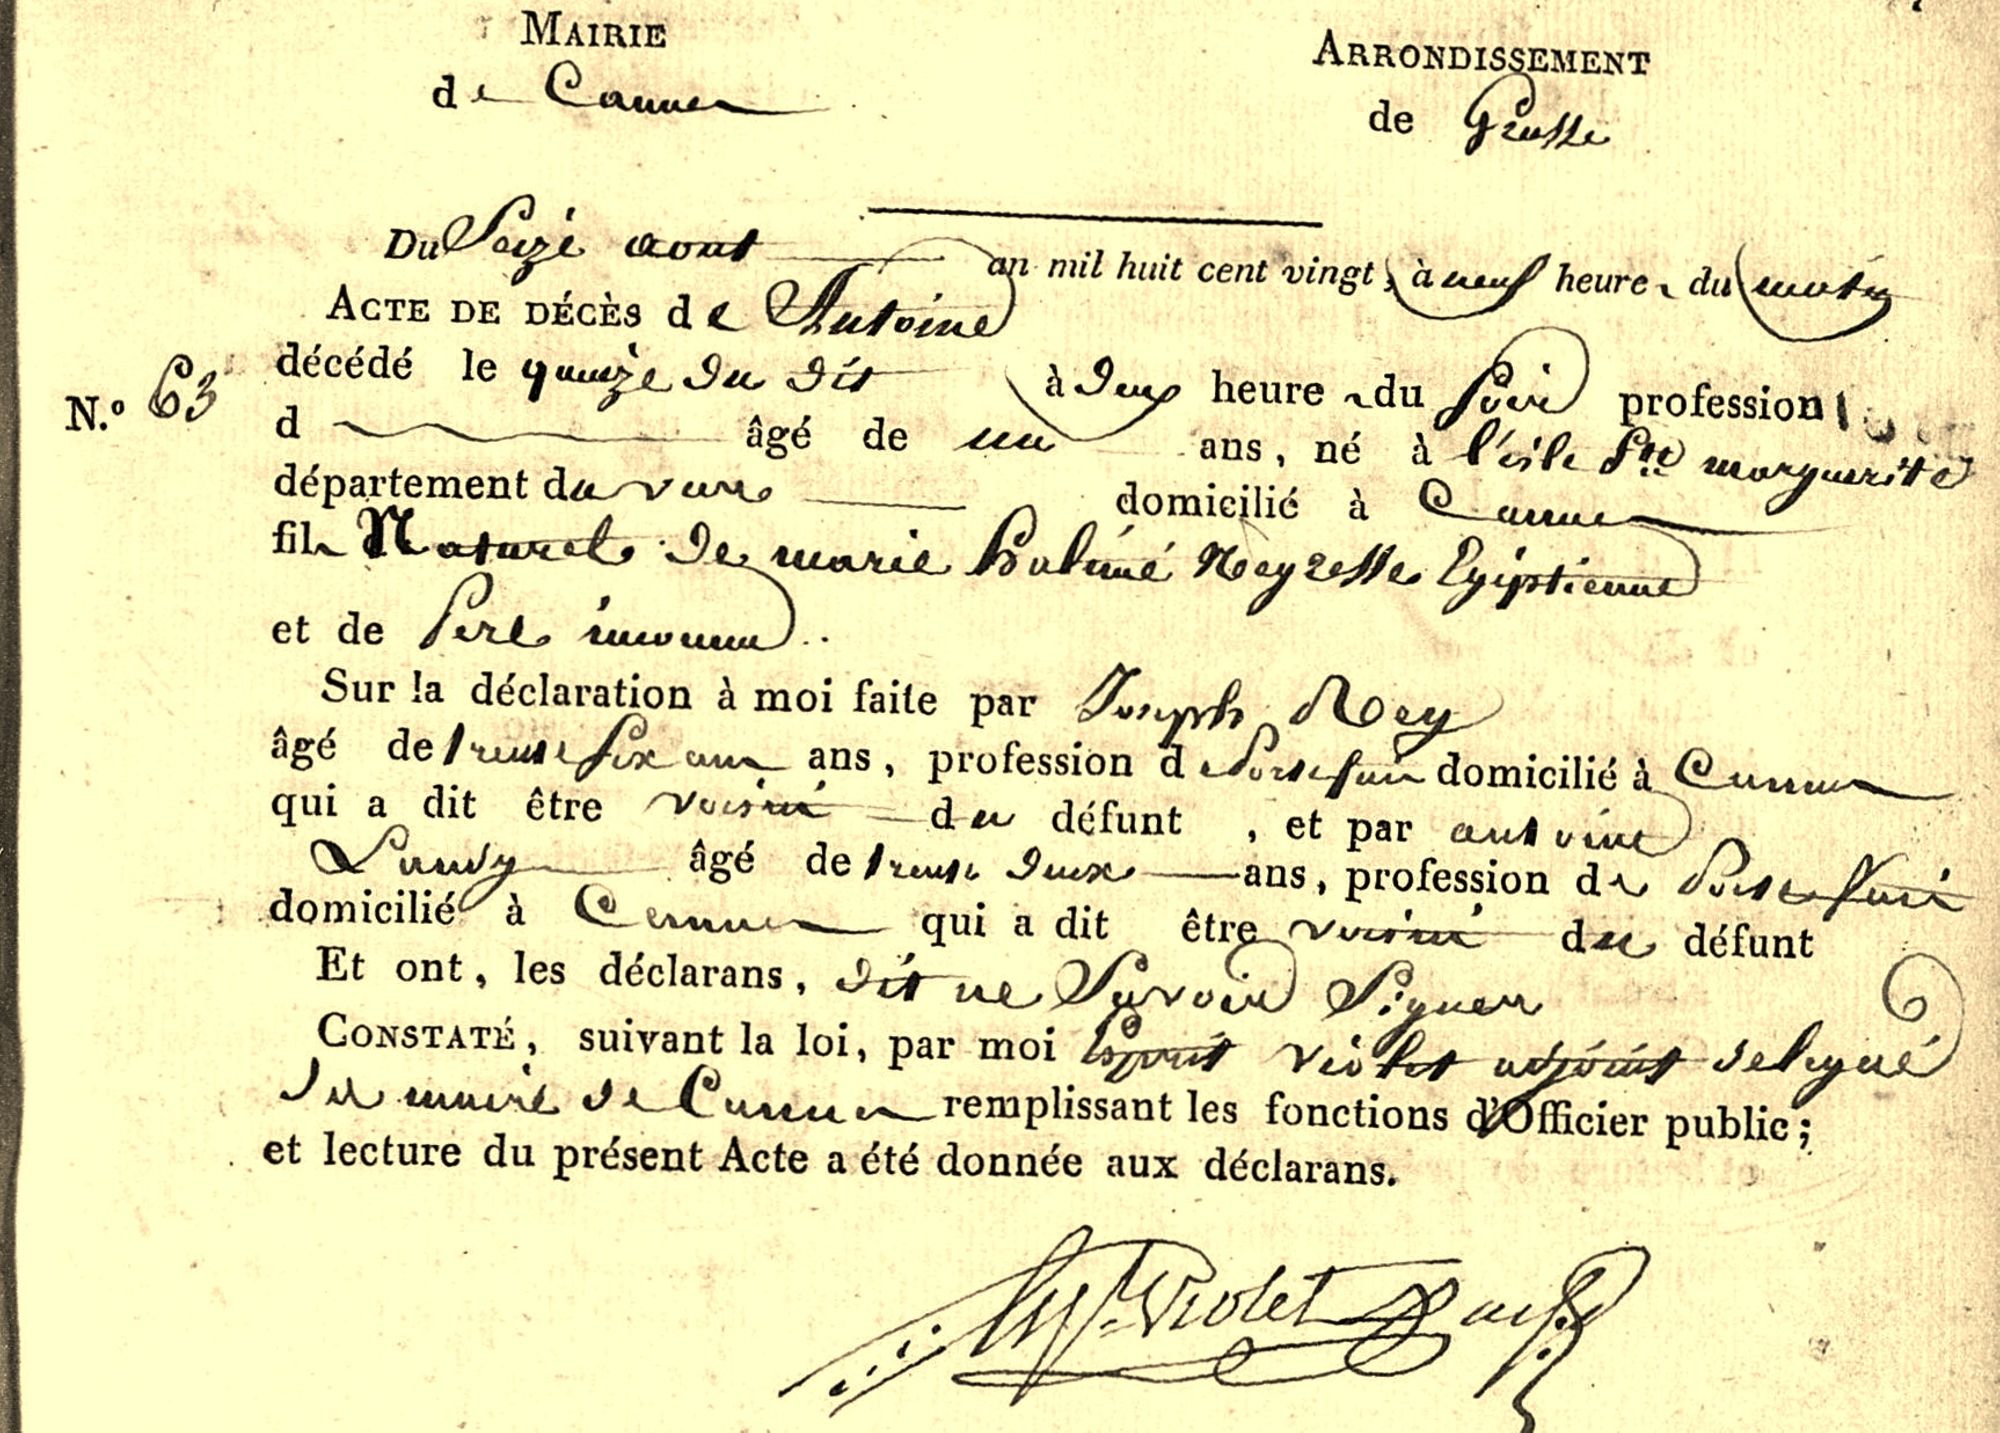 MAIRIE
de Cannes
ARRONDISSEMENT
de Grasse
Du Seize aout an mil huit cent vingt, à neuf heures du matin
ACTE DE DÉCÈS de Antoine
décédé le quinze du dit à deux heures du soir profession
N.º 63
d âgé de un ans, né à l'isle Ste marguerite
département du var domicilié à Cannes
fils Naturel de marie Négresse Egiptienne
et de Pere inconnu
Sur la déclaration à moi faite par Joseph Rey
âgé de trente six ans ans, profession de Portefaix domicilié à Cannes
qui a dit être voisin du défunt, et par antoine
Landy âgé de trente deux ans, profession de Portefaix
domicilié à Cannes qui a dit être voisin du défunt
Et ont, les déclarans, dit ne Savoir Signer
CONSTATÉ, suivant la loi, par moi Esprit violet adjoint delegué
du maire de Cannes remplissant les fonctions d'Officier public;
et lecture du présent Acte a été donnée aux déclarans.
Violet